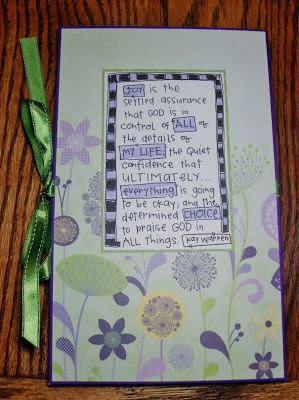 JOY is the
settled assurance
that GOD is in
control of ALL of
the details of
MY LIFE, the Quiet
confidence that
ULTIMATELY...
everything is going
to be okay, and the
determined CHOICE
to praise GOD in
ALL things. Kay Warren